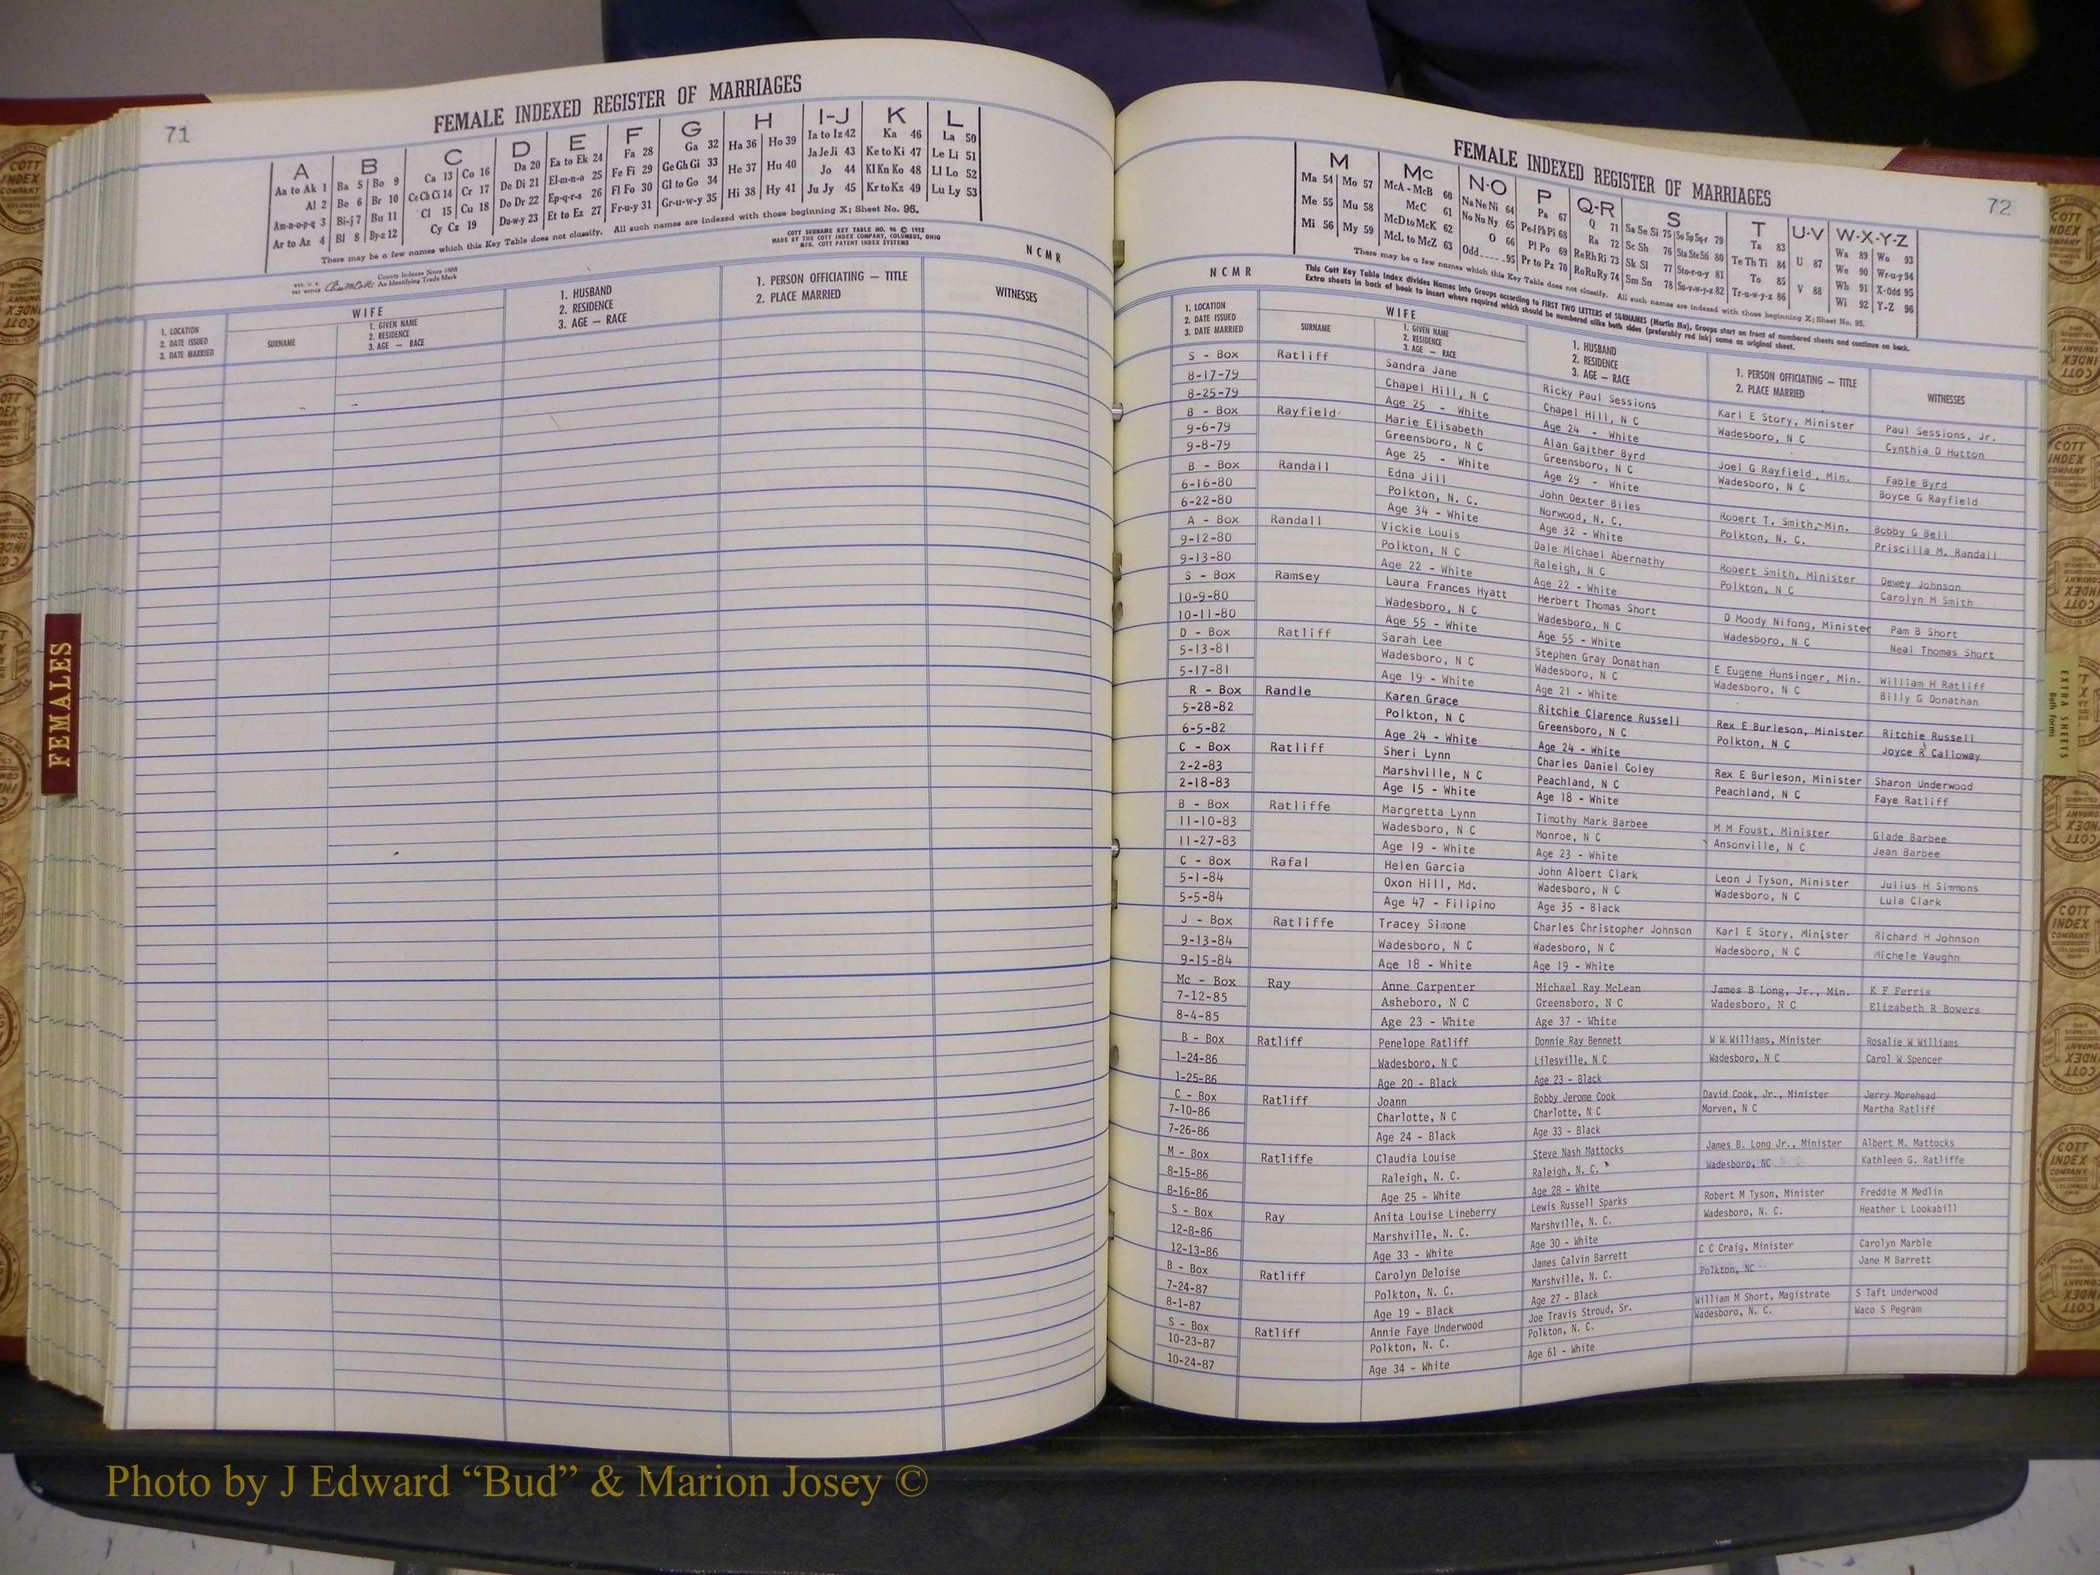 71
FEMALE INDEXED REGISTER OF MARRIAGES
A B C D E F G H I-J K L
Aa to Ak 1 Ba 5 Bo 9 Ca 13 Co 16 Da 20 Ea to Ek 24 Fa 28 Ga 32 Ha 36 Ho 39 Ia to Iz 42 Ka 46 La 50
Al 2 Be 6 Br 10 Ce Ch Ci 14 Cr 17 De Di 21 El-m-n-o 25 Fe Fi 29 Ge Gh Gi 33 He 37 Hu 40 Ja Je Ji 43 Ke to Ki 47 Le Li 51
Am-n-o-p-q 3 Bi-j 7 Bu 11 Cl 15 Cu 18 Do Dr 22 Ep-q-r-s 26 Fl Fo 30 Gl to Go 34 Hi 38 Hy 41 Jo 44 Kl Kn Ko 48 Ll Lo 52
Ar to Az 4 Bl 8 By-z 12 Cy Cz 19 Du-w-y 23 Et to Ez 27 Fr-u-y 31 Gr-u-w-y 35 Ju Jy 45 Kr to Kz 49 Lu Ly 53
There may be a few names which this Key Table does not classify. All such names are indexed with those beginning X; Sheet No. 95.
COTT SURNAME KEY TABLE NO. 96 © 1952
MADE BY THE COTT INDEX COMPANY, COLUMBUS, OHIO
MFG. COTT PATENT INDEX SYSTEMS
County Indexes Since 1888
An Identifying Trade Mark
N C M R
1. LOCATION
2. DATE ISSUED
3. DATE MARRIED
WIFE
SURNAME
1. GIVEN NAME
2. RESIDENCE
3. AGE — RACE
1. HUSBAND
2. RESIDENCE
3. AGE — RACE
1. PERSON OFFICIATING — TITLE
2. PLACE MARRIED
WITNESSES
FEMALES
72
FEMALE INDEXED REGISTER OF MARRIAGES
M Mc N-O P Q-R S T U-V W-X-Y-Z
Ma 54 Mo 57 McA - McB 60 Na Ne Ni 64 Pa 67 Q 71 Sa Se Si 75 So Sp Sq-r 79 Ta 83 U 87 Wa 89 Wo 93
Me 55 Mu 58 McC 61 No Nu Ny 65 Pe-f Ph Pi 68 Ra 72 Sc Sh 76 Sta Ste Sti 80 Te Th Ti 84 V 88 We 90 Wr-u-y 94
Mi 56 My 59 McD to McK 62 O 66 Pl Po 69 Re Rh Ri 73 Sk Sl 77 Sto-r-u-y 81 To 85 Wh 91 X-Odd 95
McL to McZ 63 Odd 95 Pr to Pz 70 Ro Ru Ry 74 Sm Sn 78 Su-v-w-y-z 82 Tr-u-w-y-z 86 Wi 92 Y-Z 96
There may be a few names which this Key Table does not classify. All such names are indexed with those beginning X; Sheet No. 95.
This Cott Key Table Index divides Names into Groups according to FIRST TWO LETTERS of SURNAMES (Martin Ma), Groups start on front of numbered sheets and continue on back.
Extra sheets in back of book to insert where required which should be numbered alike both sides (preferably red ink) same as original sheet.
N C M R
1. LOCATION
2. DATE ISSUED
3. DATE MARRIED
WIFE
SURNAME
1. GIVEN NAME
2. RESIDENCE
3. AGE — RACE
1. HUSBAND
2. RESIDENCE
3. AGE — RACE
1. PERSON OFFICIATING — TITLE
2. PLACE MARRIED
WITNESSES
S - Box Ratliff Sandra Jane Ricky Paul Sessions Karl E Story, Minister Paul Sessions, Jr.
8-17-79 Chapel Hill, N C Chapel Hill, N C Wadesboro, N C Cynthia D Hutton
8-25-79 Age 25 - White Age 24 - White
B - Box Rayfield Marie Elisabeth Alan Gaither Byrd Joel G Rayfield, Min. Fable Byrd
9-6-79 Greensboro, N C Greensboro, N C Wadesboro, N C Boyce G Rayfield
9-8-79 Age 25 - White Age 29 - White
B - Box Randall Edna Jill John Dexter Biles Robert T. Smith, Min. Bobby G Bell
6-16-80 Polkton, N. C. Norwood, N. C. Polkton, N. C. Priscilla M. Randall
6-22-80 Age 34 - White Age 32 - White
A - Box Randall Vickie Louis Dale Michael Abernathy Robert Smith, Minister Dewey Johnson
9-12-80 Polkton, N C Raleigh, N C Polkton, N C Carolyn M Smith
9-13-80 Age 22 - White Age 22 - White
S - Box Ramsey Laura Frances Hyatt Herbert Thomas Short D Moody Nifong, Minister Pam B Short
10-9-80 Wadesboro, N C Wadesboro, N C Wadesboro, N C Neal Thomas Short
10-11-80 Age 55 - White Age 55 - White
D - Box Ratliff Sarah Lee Stephen Gray Donathan E Eugene Hunsinger, Min. William H Ratliff
5-13-81 Wadesboro, N C Wadesboro, N C Wadesboro, N C Billy G Donathan
5-17-81 Age 19 - White Age 21 - White
R - Box Randle Karen Grace Ritchie Clarence Russell Rex E Burleson, Minister Ritchie Russell
5-28-82 Polkton, N C Greensboro, N C Polkton, N C Joyce R Calloway
6-5-82 Age 24 - White Age 24 - White
C - Box Ratliff Sheri Lynn Charles Daniel Coley Rex E Burleson, Minister Sharon Underwood
2-2-83 Marshville, N C Peachland, N C Peachland, N C Faye Ratliff
2-18-83 Age 15 - White Age 18 - White
B - Box Ratliffe Margretta Lynn Timothy Mark Barbee M M Foust, Minister Glade Barbee
11-10-83 Wadesboro, N C Monroe, N C Ansonville, N C Jean Barbee
11-27-83 Age 19 - White Age 23 - White
C - Box Rafal Helen Garcia John Albert Clark Leon J Tyson, Minister Julius H Simmons
5-1-84 Oxon Hill, Md. Wadesboro, N C Wadesboro, N C Lula Clark
5-5-84 Age 47 - Filipino Age 35 - Black
J - Box Ratliffe Tracey Simone Charles Christopher Johnson Karl E Story, Minister Richard H Johnson
9-13-84 Wadesboro, N C Wadesboro, N C Wadesboro, N C Michele Vaughn
9-15-84 Age 18 - White Age 19 - White
Mc - Box Ray Anne Carpenter Michael Ray McLean James B Long, Jr., Min. K F Ferris
7-12-85 Asheboro, N C Greensboro, N C Wadesboro, N C Elizabeth R Bowers
8-4-85 Age 23 - White Age 37 - White
B - Box Ratliff Penelope Ratliff Donnie Ray Bennett W W Williams, Minister Rosalie W Williams
1-24-86 Wadesboro, N C Lilesville, N C Wadesboro, N C Carol W Spencer
1-25-86 Age 20 - Black Age 23 - Black
C - Box Ratliff Joann Bobby Jerome Cook David Cook, Jr., Minister Jerry Morehead
7-10-86 Charlotte, N C Charlotte, N C Morven, N C Martha Ratliff
7-26-86 Age 24 - Black Age 33 - Black
M - Box Ratliffe Claudia Louise Steve Nash Mattocks James B. Long Jr., Minister Albert M. Mattocks
8-15-86 Raleigh, N. C. Raleigh, N. C. Wadesboro, NC Kathleen G. Ratliffe
8-16-86 Age 25 - White Age 28 - White
S - Box Ray Anita Louise Lineberry Lewis Russell Sparks Robert M Tyson, Minister Freddie M Medlin
12-8-86 Marshville, N. C. Marshville, N. C. Wadesboro, N. C. Heather L Lookabill
12-13-86 Age 33 - White Age 30 - White
B - Box Ratliff Carolyn Deloise James Calvin Barrett C C Craig, Minister Carolyn Marble
7-24-87 Polkton, N. C. Marshville, N. C. Polkton, NC Jane M Barrett
8-1-87 Age 19 - Black Age 27 - Black
S - Box Ratliff Annie Faye Underwood Joe Travis Stroud, Sr. William M Short, Magistrate S Taft Underwood
10-23-87 Polkton, N. C. Polkton, N. C. Wadesboro, N. C. Waco S Pegram
10-24-87 Age 34 - White Age 61 - White
EXTRA SHEETS
Both Forms
COTT
INDEX
COMPANY
Photo by J Edward “Bud” & Marion Josey ©